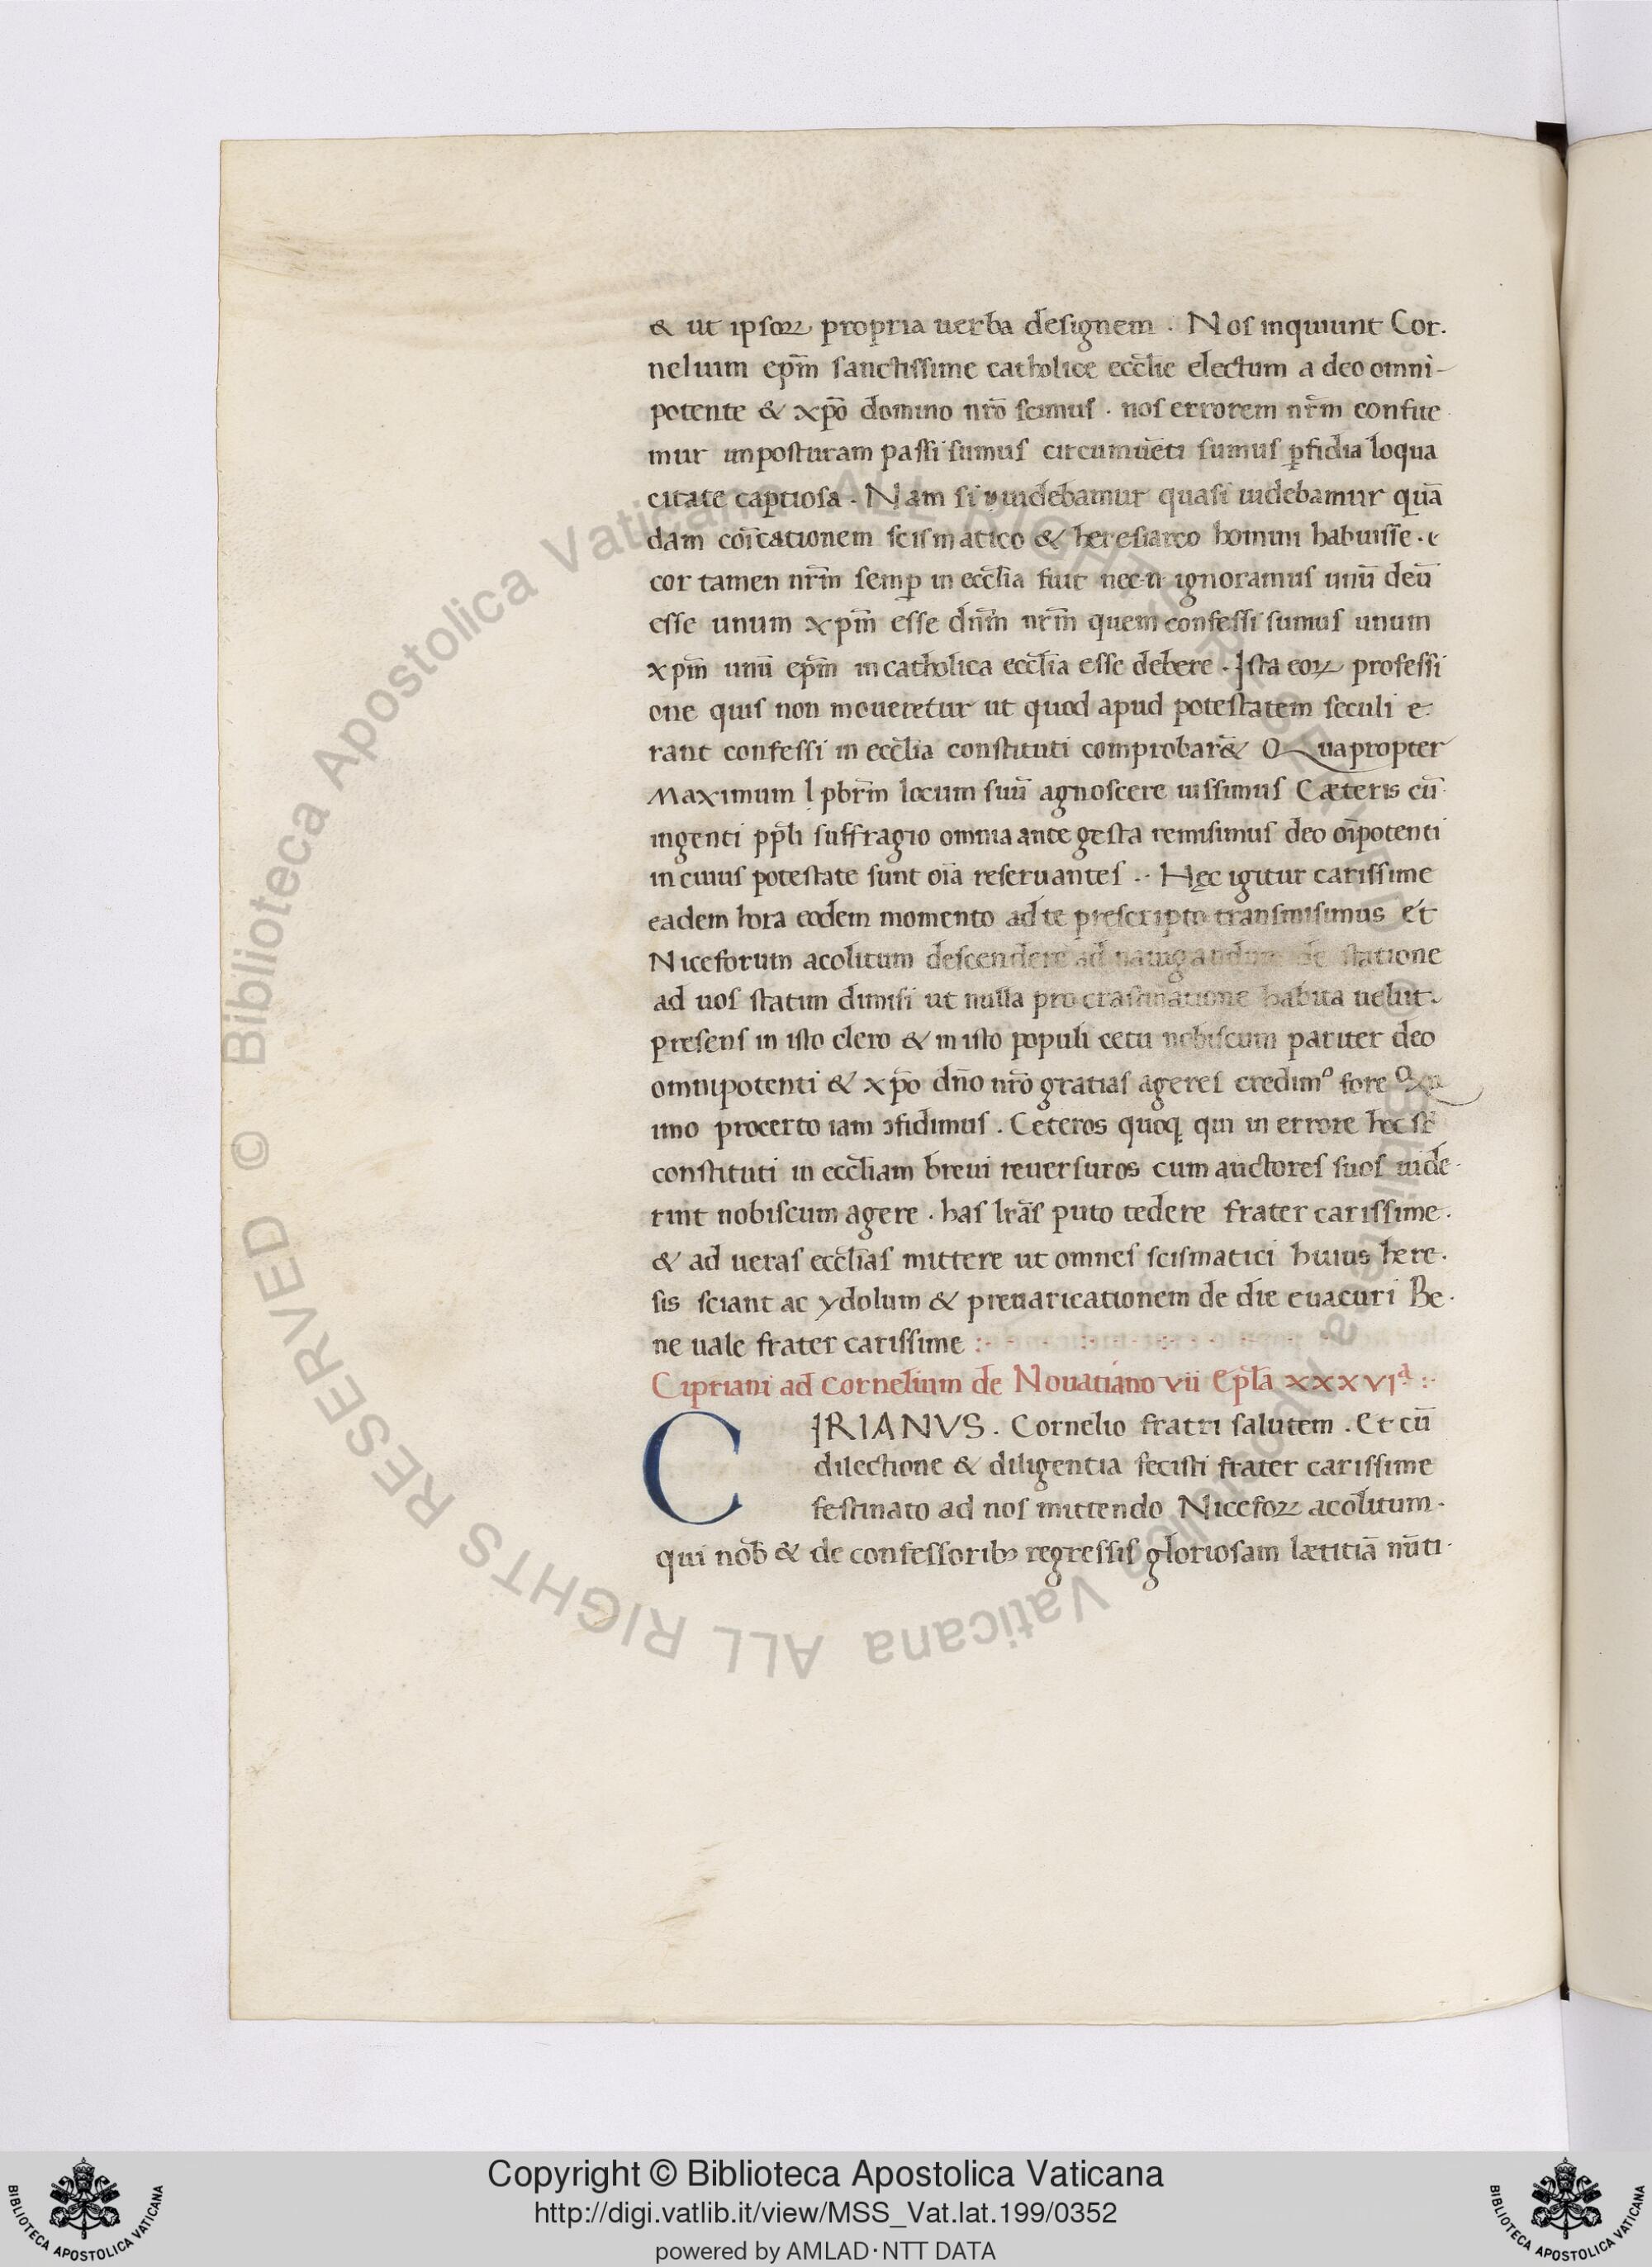 & ut ipsoꝝ propria uerba designem . Nos inquiunt Cor.
nelium ep̄m sanctissime catholice eccl̄ie electum a deo omni-
potente & xp̄o domino nr̄o scimus . nos errorem nr̄m confite
mur imposturam passi sumus circumuēti sumus ꝑfidia loqua
citate captiosa . Nam si uidebamur quasi uidebamur quā
dam cōicationem scismatico & heresiarco homini habuisse . c
cor tamen nr̄m semꝑ in eccl̄ia fuit nec n̄ ignoramus unū deū
esse unum xp̄m esse dn̄m nr̄m quem confessi sumus unum
xp̄m unū ep̄m in catholica eccl̄ia esse debere . Ista eoꝝ professi
one quis non moueretur ut quod apud potestatem seculi e-
rant confessi in eccl̄ia constituti comprobar& Quapropter
Maximum l pbr̄m locum suū agnoscere iussimus Cæteris cū
ingenti pp̄li suffragio omnia ante gesta remisimus deo oīpotenti
in cuius potestate sunt oīa reseruantes .. Hęc igitur carissime
eadem hora eodem momento ad te prescripto transmisimus et
Niceforum acolitum descendere ad nauigandum de statione
ad uos statim dimisi ut nulla procrastinatione habita uelut
presens in isto clero & in isto populi cetu nobiscum pariter deo
omnipotenti & xp̄o dn̄o nr̄o gratias ageres credimꝰ fore
imo procerto iam ꝯfidimus . Ceteros quoq̨ qui in errore hoc st̄
constituti in eccl̄iam breui reuersuros cum auctores suos uide-
rint nobiscum agere . has lrās puto tedere frater carissime.
& ad ueras eccl̄ias mittere ut omnes scismatici huius here.
sis sciant ac ydolum & preuaricationem de die euacuri Be.
ne uale frater carissime :
Cipriani ad Cornelium de Nouatiano vii Ep̄la xxxvıª :
C IRIANVS . Cornelio fratri salutem . Et cū
dilectione & diligentia fecisti frater carissime
festinato ad nos mittendo Nicefoꝝ acolitum.
qui nob̄ & de confessoribꝫ regressis gloriosam lætitiā nūti.
Copyright © Biblioteca Apostolica Vaticana
http://digi.vatlib.it/view/MSS_Vat.lat.199/0352
powered by AMLAD·NTT DATA
BIBLIOTECA APOSTOLICA VATICANA
BIBLIOTECA APOSTOLICA VATICANA
© Biblioteca Apostolica Vaticana ALL RIGHTS RESERVED
© Biblioteca Apostolica Vaticana ALL RIGHTS RESERVED